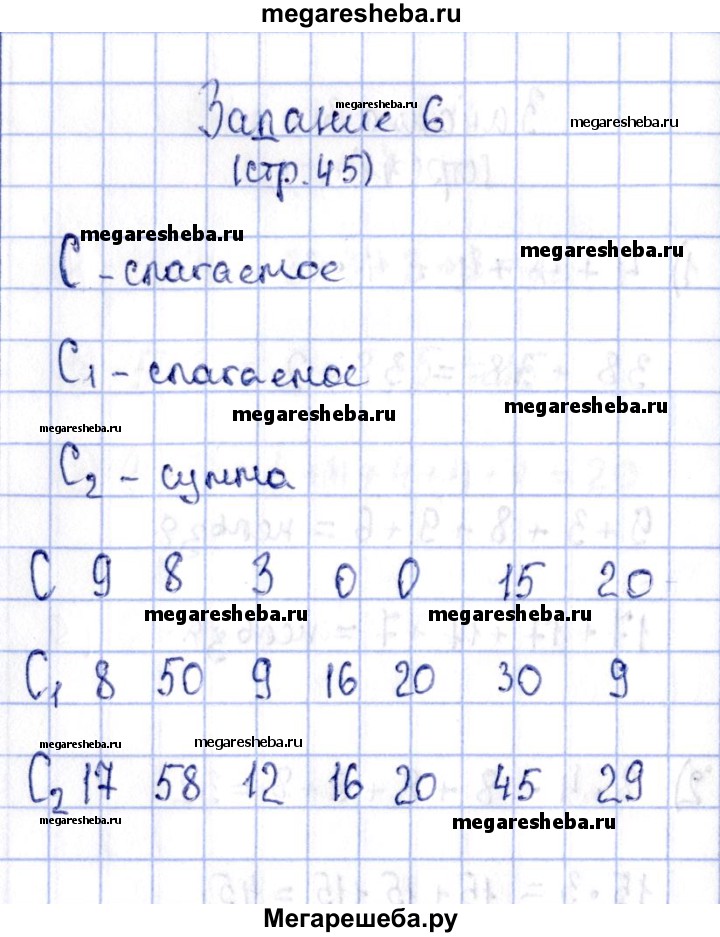 megaresheba.ru
megaresheba.ru
Задание 6
megaresheba.ru
(стр. 45)
megaresheba.ru
megaresheba.ru
С - слагаемое
С1 - слагаемое
megaresheba.ru
megaresheba.ru
megaresheba.ru
С2 - сумма
С 9 8 3 0 0 15 20
megaresheba.ru
megaresheba.ru
С1 8 50 9 16 20 30 9
megaresheba.ru
megaresheba.ru
С2 17 58 12 16 20 45 29
megaresheba.ru
megaresheba.ru
Мегарешеба.ру